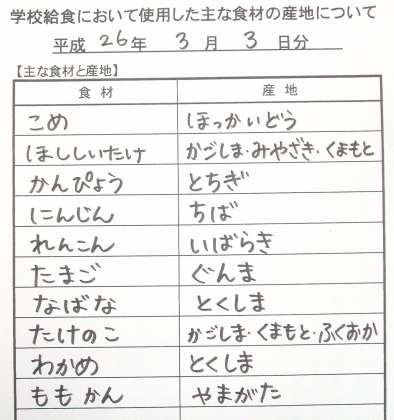 学校給食において使用した主な食材の産地について
平成 26年 3月 3日分
【主な食材と産地】
食材 産地
こめ ほっかいどう
ほししいたけ かごしま・みやざき・くまもと
かんぴょう とちぎ
にんじん ちば
れんこん いばらき
たまご ぐんま
なばな とくしま
たけのこ かごしま・くまもと・ふくおか
わかめ とくしま
ももかん やまがた